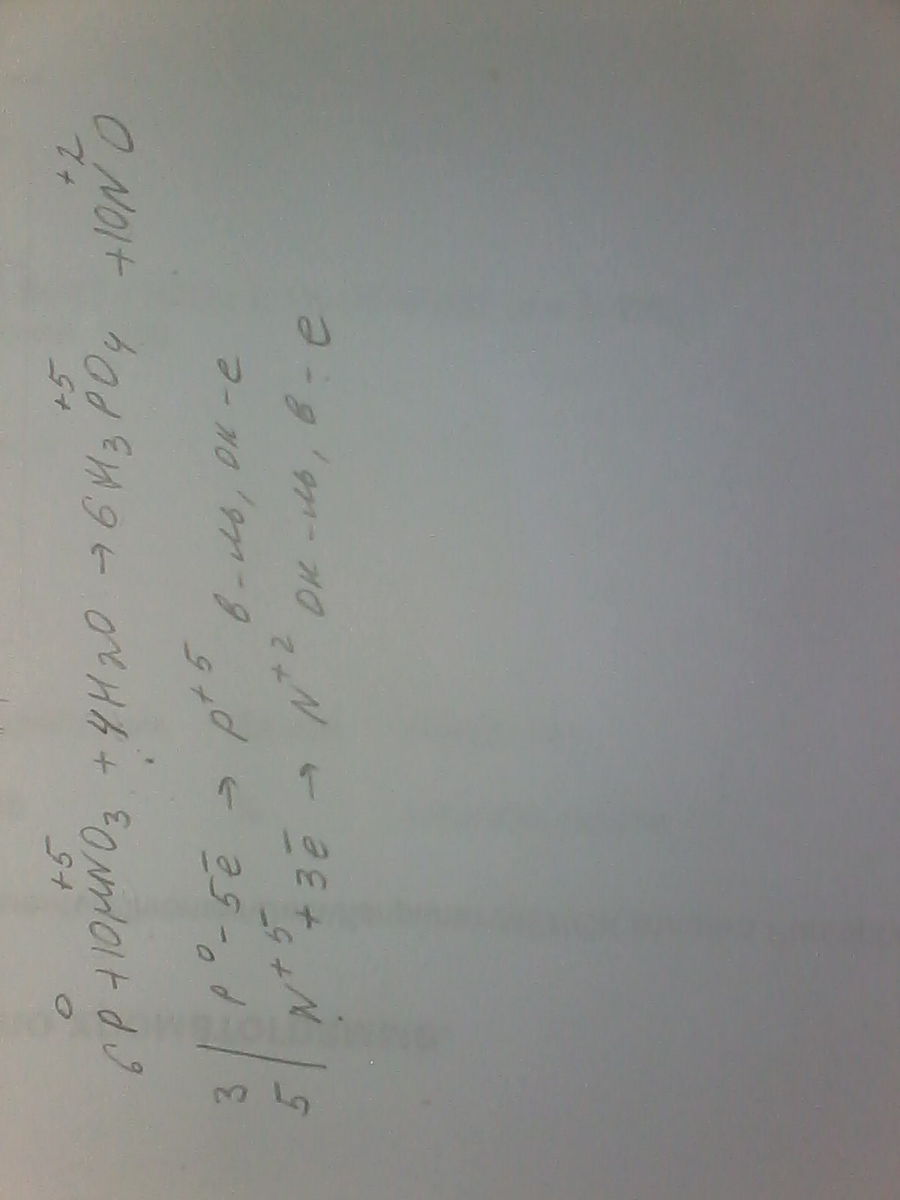 6P⁰ + 10HN⁺⁵O₃ + 4H₂O → 6H₃P⁺⁵O₄ + 10N⁺²O
3 | P⁰ - 5ē → P⁺⁵ в-ль, ок-е
5 | N⁺⁵ + 3ē → N⁺² ок-ль, в-е